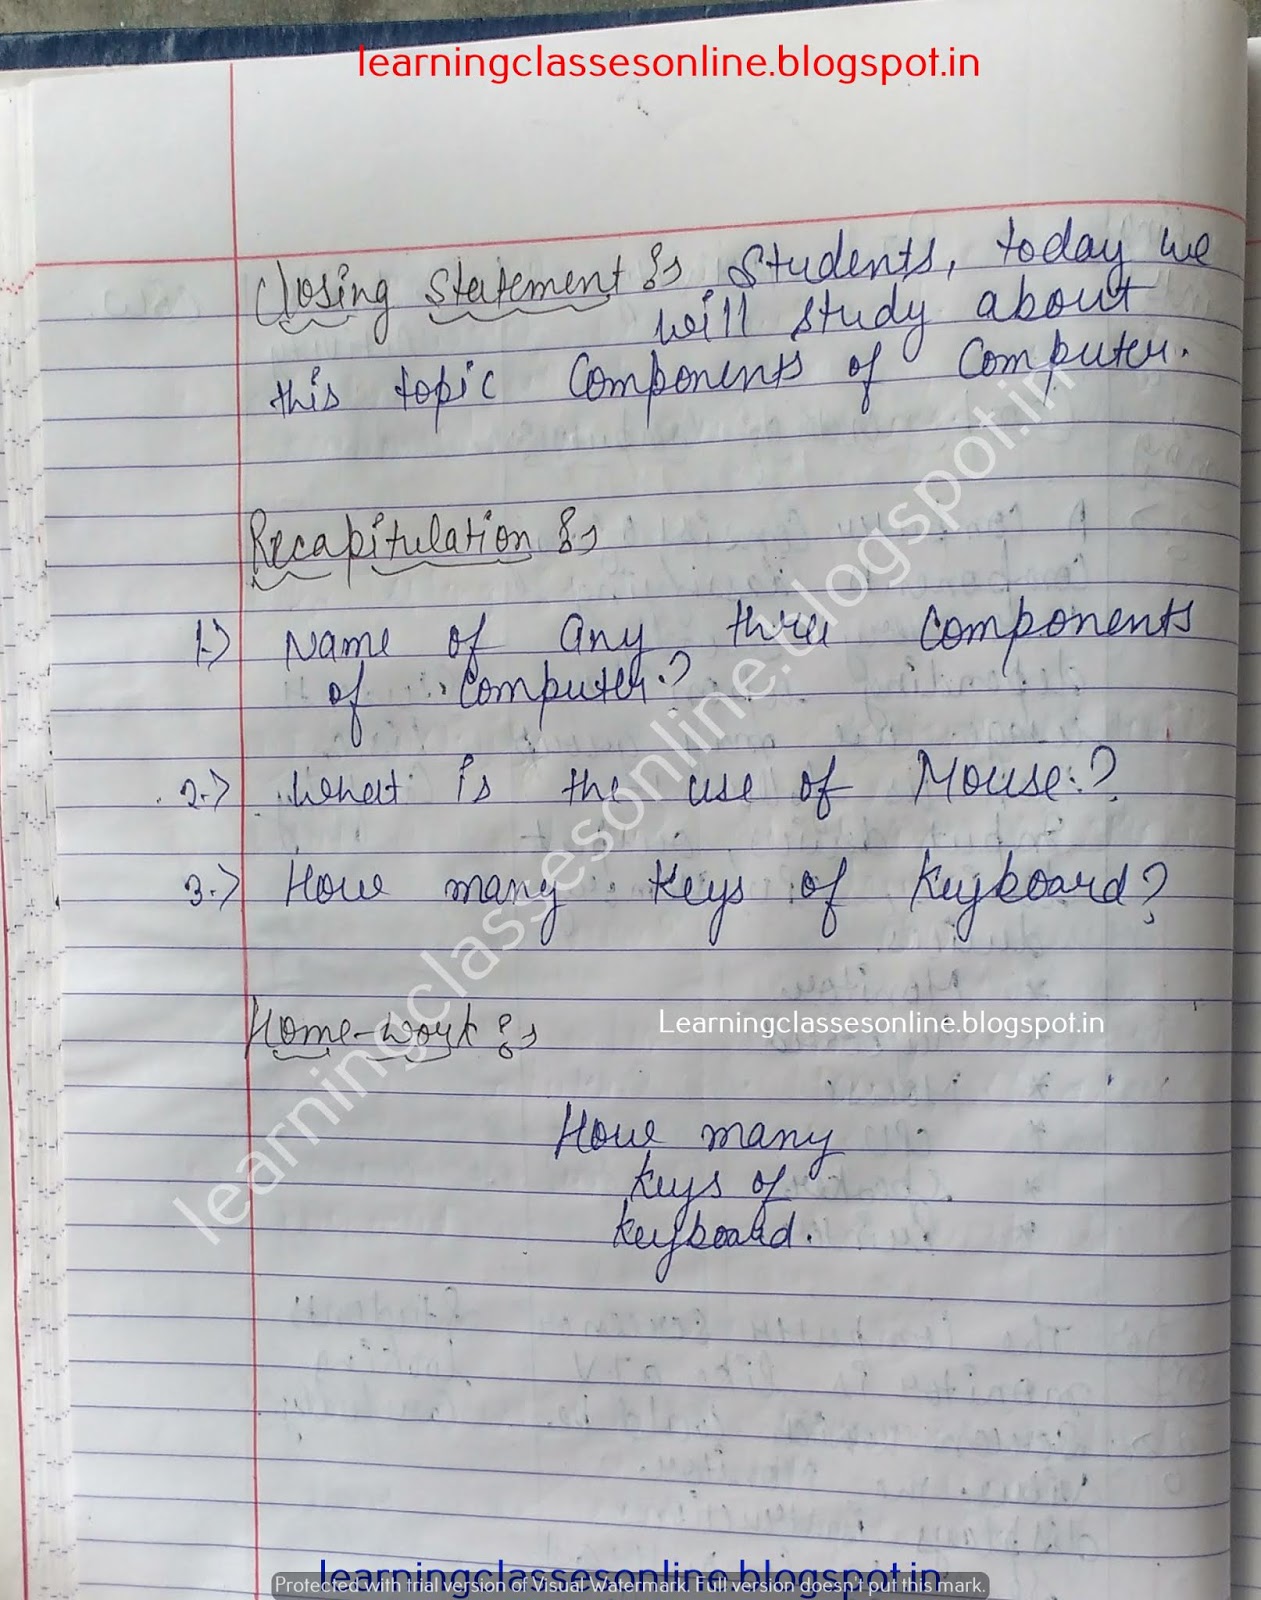 learningclassesonline.blogspot.in
Closing Statement :- Students, today we
will study about
this topic Components of Computer.
Recapitulation :-
1.) Name of any three components
of computer.?
2.) What is the use of Mouse.?
3.) How many keys of keyboard?
Home-work :-
Learningclassesonline.blogspot.in
How many
keys of
keyboard.
learningclassesonline.blogspot.in
learningclassesonline.blogspot.in
Protected with trial version of Visual Watermark. Full version doesn't put this mark.